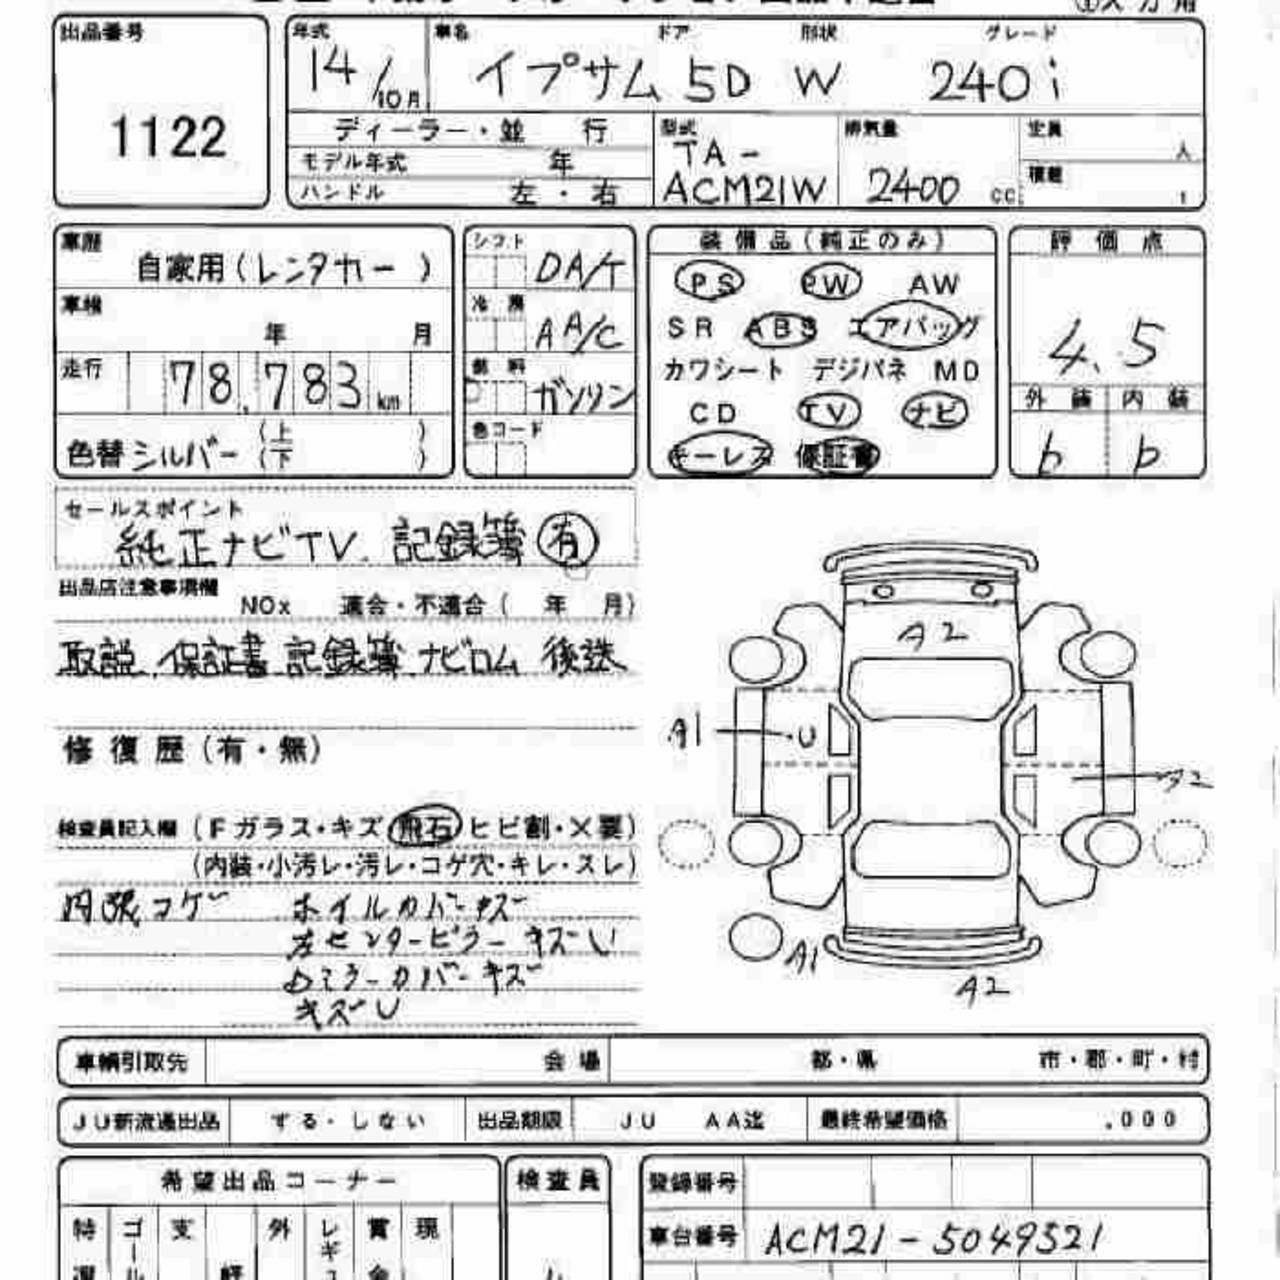 出品番号
1122
年式 車名 ドア 形状 グレード
14/10月 イプサム 5D W 240i
ディーラー・並 行
モデル年式 年
ハンドル 左・右
型式
TA-
ACM21W
排気量
2400 cc
定員
人
積載
t
車歴
自家用(レンタカー )
車検
年 月
走行
78.783 km
色替 シルバー (上 下 )
シフト
DA/T
冷 房
AA/C
燃 料
ガソリン
色コード
装備品(純正のみ)
PS PW AW
SR ABS エアバッグ
カワシート デジパネ MD
CD TV ナビ
キーレス 保証書
評価点
4.5
外 装 内 装
b b
セールスポイント
純正ナビTV. 記録簿 有
出品店注意事項欄
NOx 適合・不適合( 年 月)
取説 保証書 記録簿 ナビロム 後送
修復歴(有・無)
検査員記入欄 (Fガラス・キズ 飛石 ヒビ割・X要)
(内装・小汚レ・汚レ・コゲ穴・キレ・スレ)
内張コゲ ホイルカバーキズ
左センターピラーキズU
ミラーカバーキズ
キズU
A2
A1 U
A2
A1
A2
車輌引取先 会場 都・県 市・郡・町・村
JU新流通出品 する・しない 出品期限 JU AA迄 最終希望価格 .000
希望出品コーナー
検査員
登録番号
車台番号 ACM21-5049521